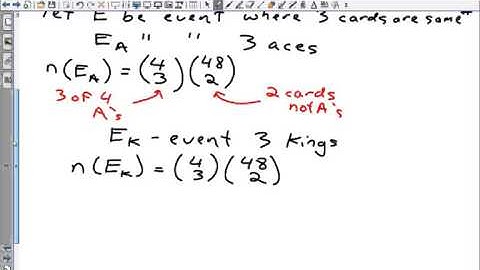 let E be event where 3 cards are same
E_A " " 3 aces
n(E_A) = (4 3)(48 2)
3 of 4 A's
2 cards not A's
E_K - event 3 kings
n(E_K) = (4 3)(48 2)